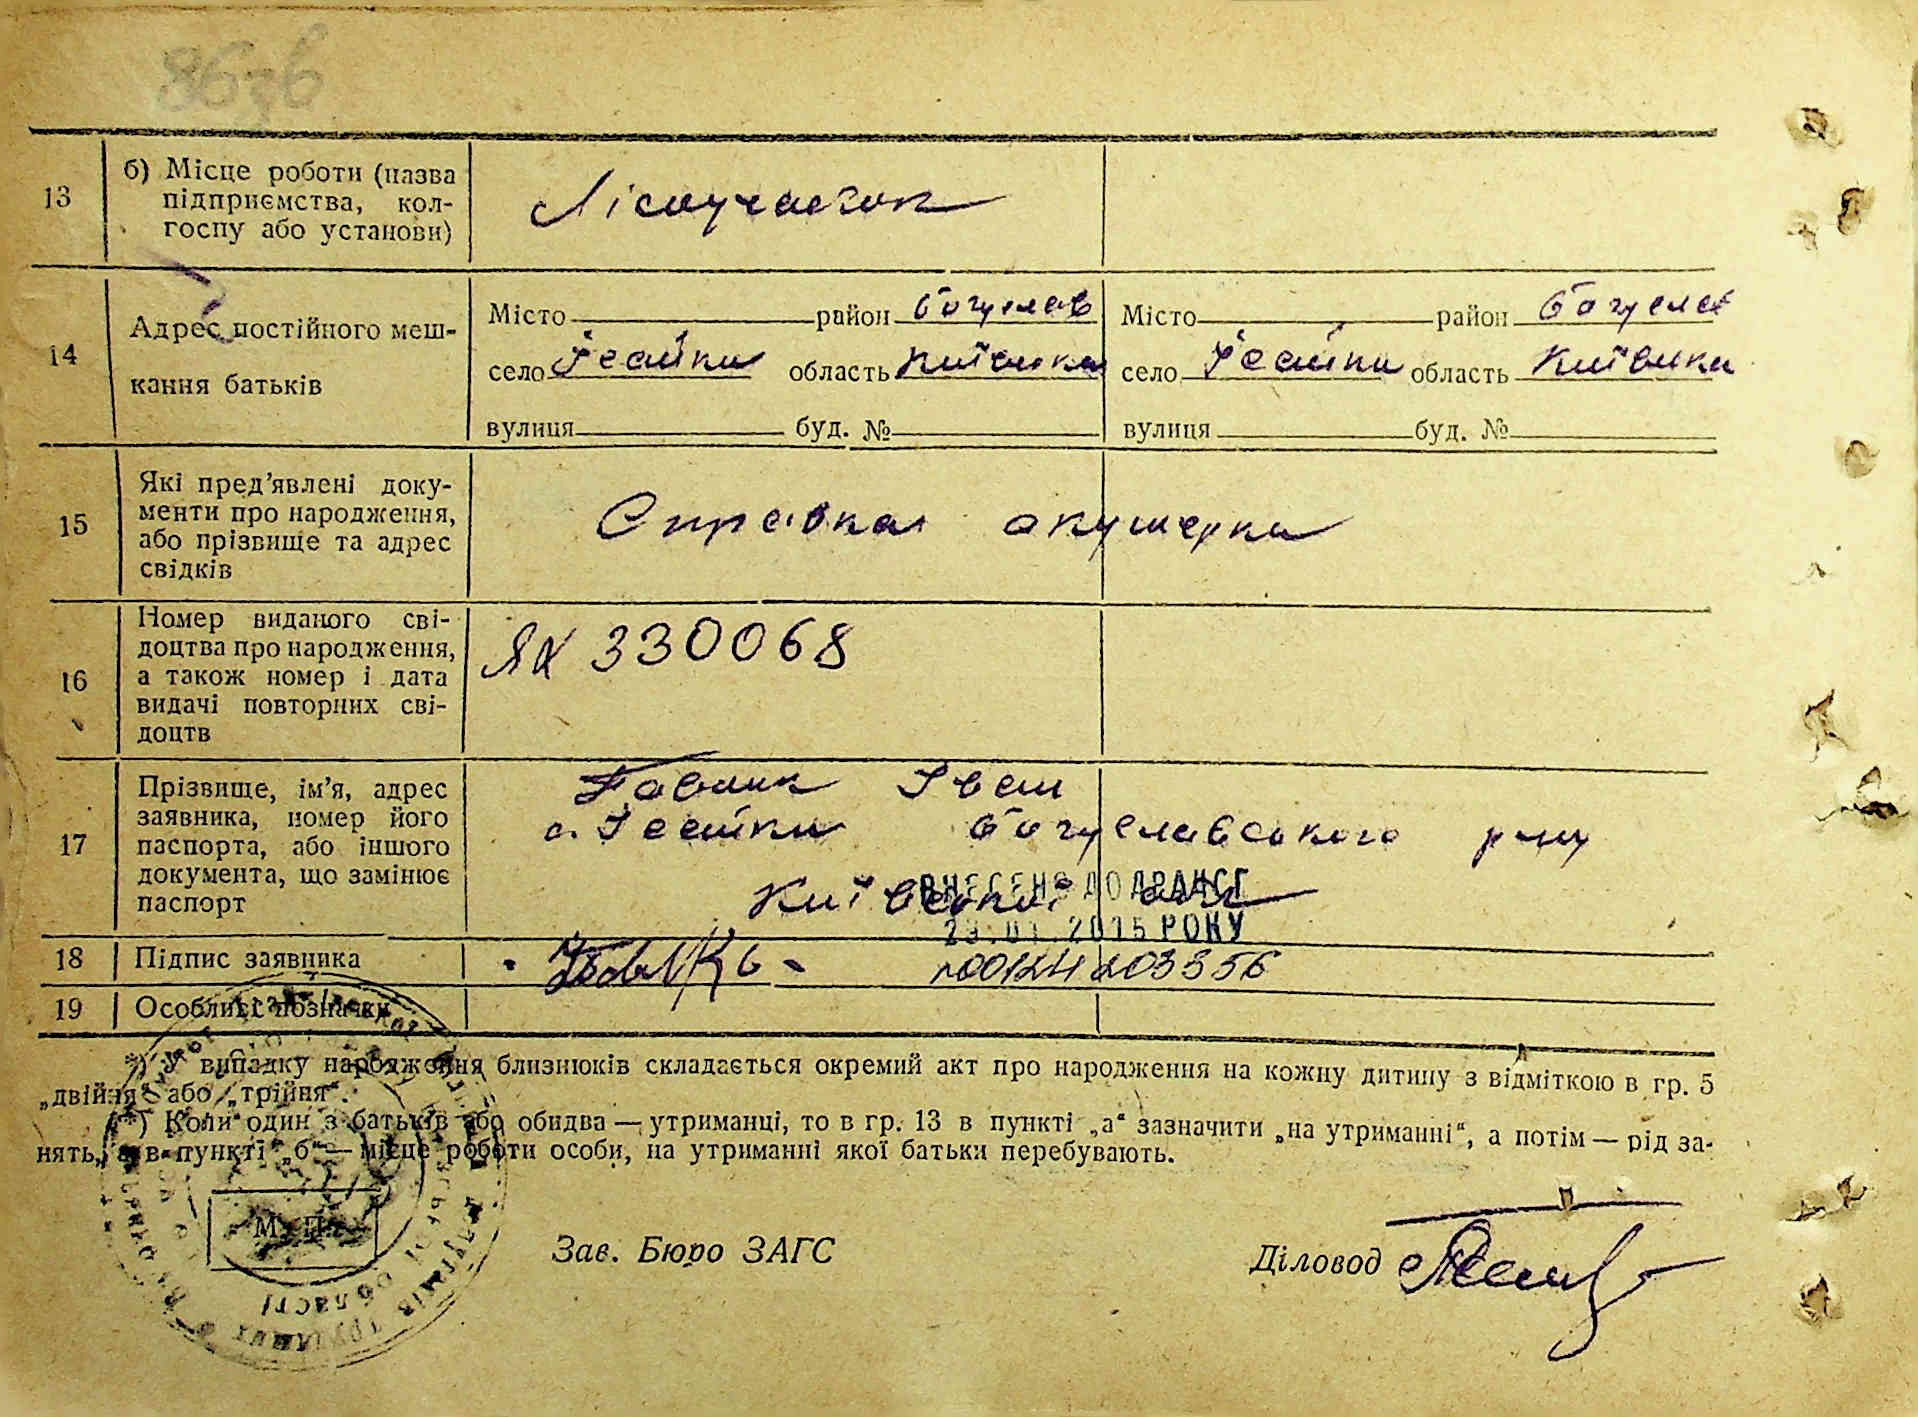 13
б) Місце роботи (назва
підприємства, кол-
госпу або установи)
Лісоучасток
14
Адрес постійного меш-
кання батьків
Місто район Богуслав
село Ісайки область Київська
вулиця буд. №
Місто район Богуслав
село Ісайки область Київська
вулиця буд. №
15
Які пред’явлені доку-
менти про народження,
або прізвище та адрес
свідків
Справка акушерки
16
Номер виданого сві-
доцтва про народження,
а також номер і дата
видачі повторних сві-
доцтв
330068
17
Прізвище, ім’я, адрес
заявника, номер його
паспорта, або іншого
документа, що замінює
паспорт
Іван
с. Ісайки Богуславського р-ну
Київської обл
ВНЕСЕНО ДО ДРАЦСГ
2015 РОКУ
18
Підпис заявника
00124203356
19
Особливі позначки
*) У випадку народження близнюків складається окремий акт про народження на кожну дитину з відміткою в гр. 5
„двійня“ або „трійня“.
**) Коли один з батьків або обидва — утриманці, то в гр. 13 в пункті „а“ зазначити „на утриманні“, а потім — рід за-
нять, а в пункті „б“ — місце роботи особи, на утриманні якої батьки перебувають.
М. П.
Зав. Бюро ЗАГС
Діловод